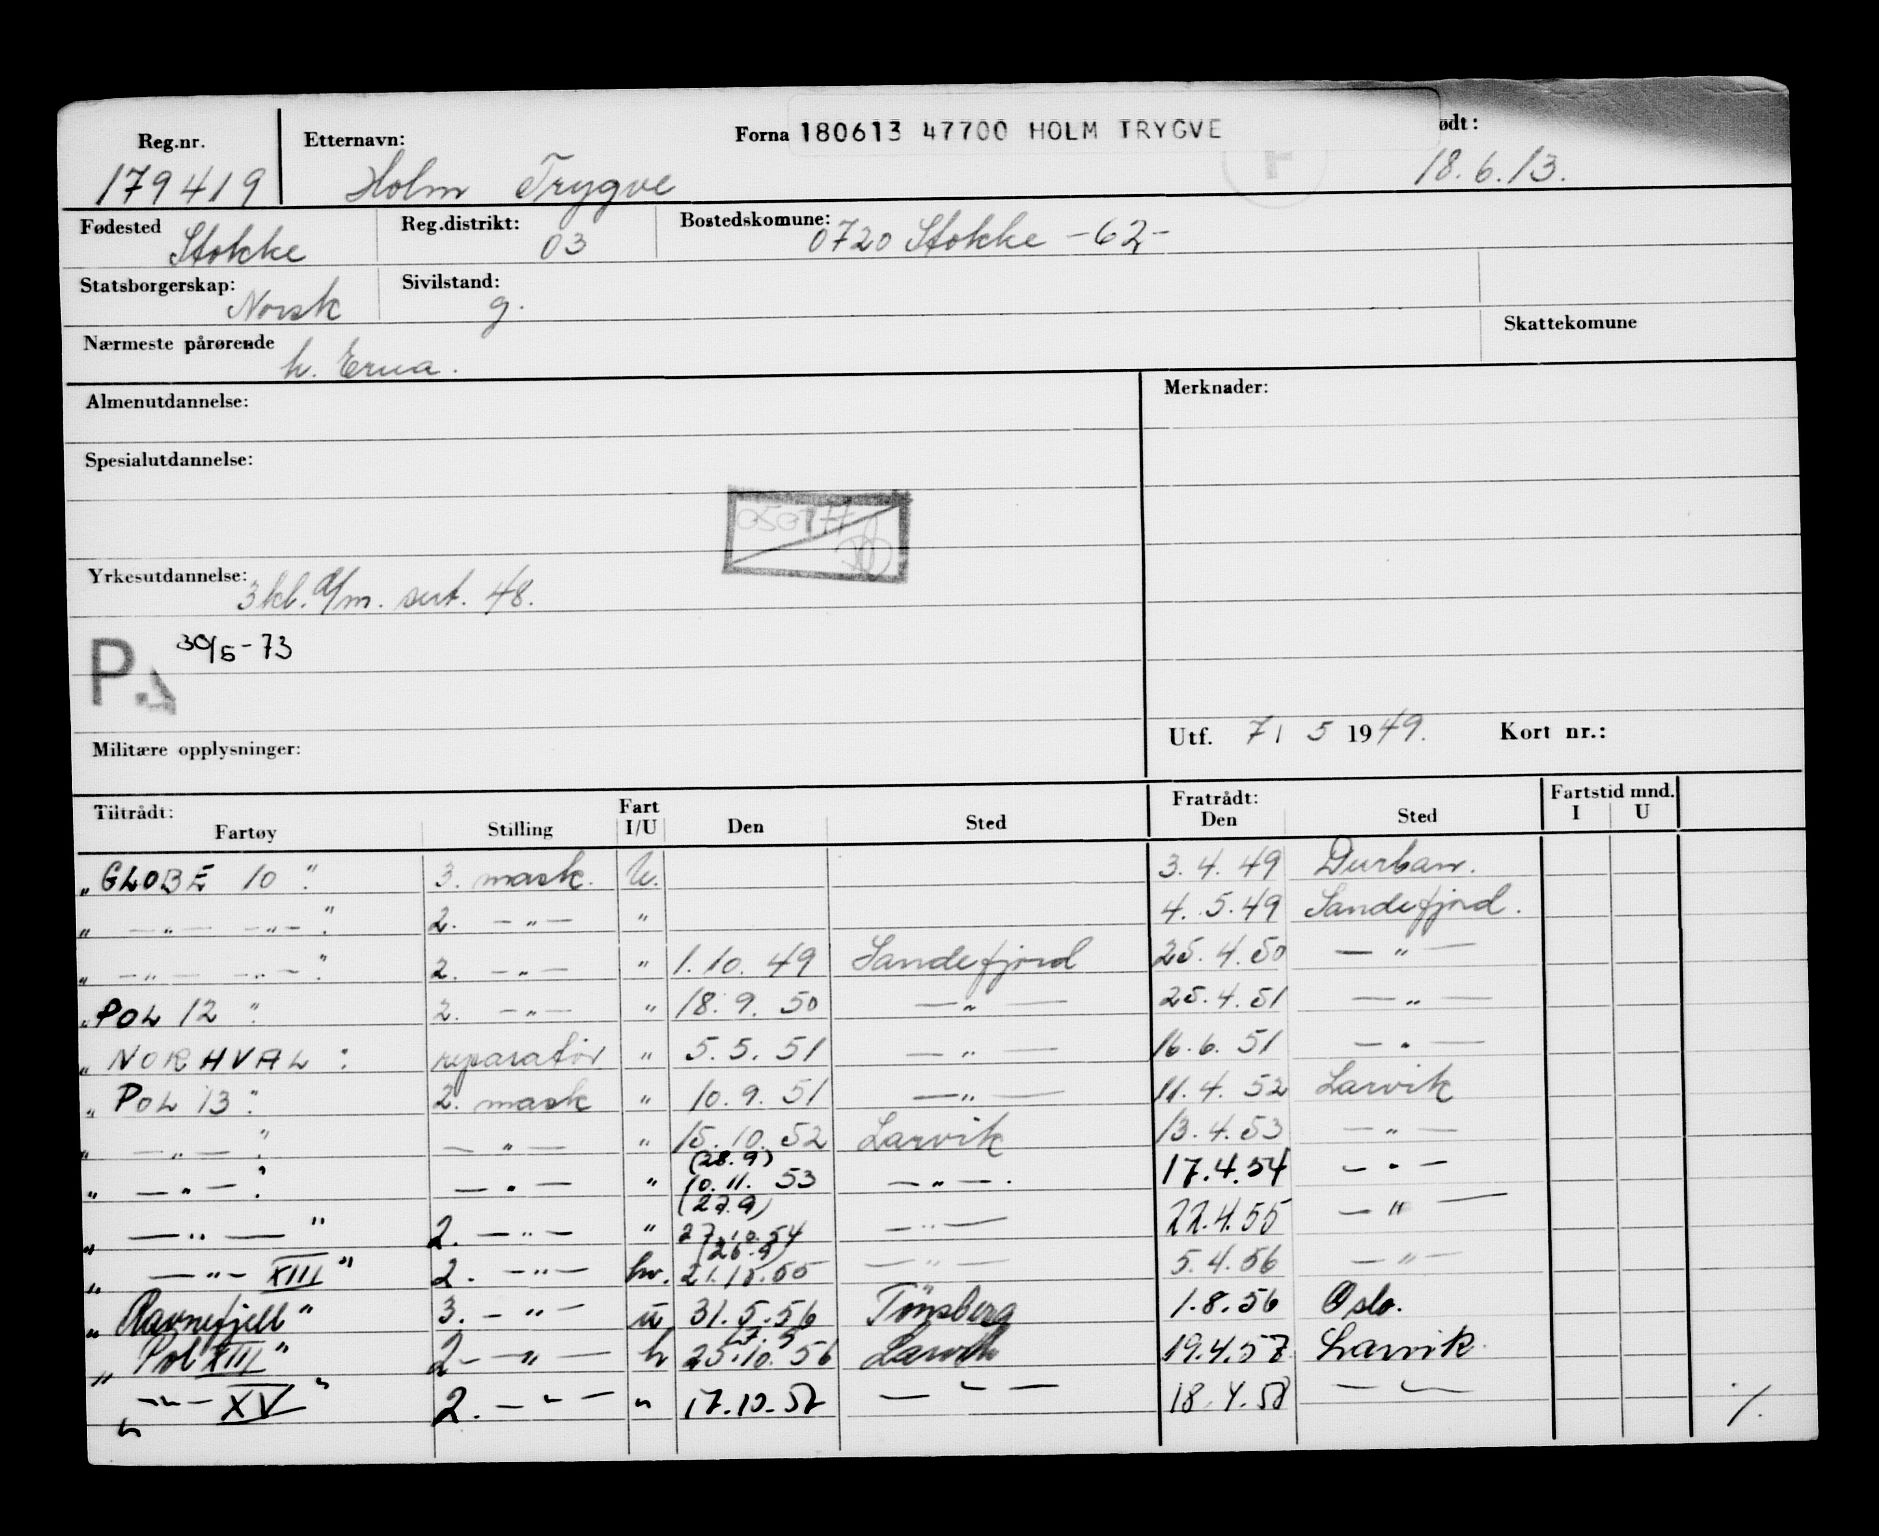 Reg.nr. Etternavn: Forna 180613 47700 HOLM TRYGVE ødt:
179419 Holm Trygve 18.6.13.
Fødested Stokke Reg.distrikt: 03 Bostedskomune: 0720 Stokke -62-
Statsborgerskap: Norsk Sivilstand: g.
Nærmeste pårørende h. Erna. Skattekomune
Almenutdannelse: Merknader:
Spesialutdannelse:
Yrkesutdannelse: 3 kl. d/m. sert. 48.
P. 30/5-73
Militære opplysninger: Utf. 7/ 5 1949. Kort nr.:
Tiltrådt: Fart Fratrådt: Fartstid mnd.
Fartøy Stilling I/U Den Sted Den Sted I U
„GLOBE 10" 3. mask. U. 3.4.49 Durban.
„ —„— —„— " 2. —„— " 4.5.49 Sandefjord.
„ —„— —„— " 2. —„— " 1.10.49 Sandefjord 25.4.50 —„—
„POL 12" 2. —„— " 18.9.50 —„— 25.4.51 —„—
„NORHVAL" reparatør " 5.5.51 —„— 16.6.51 —„—
„POL 13" 2. mask " 10.9.51 —„— 11.4.52 Larvik
„ —„— " —„— " 15.10.52 Larvik 13.4.53 —„—
(28.9)
„ —„— " —„— " 10.11.53 —„—. 17.4.54 —„—
(27.9)
„ —„— " 2. —„— " 27.10.54 —„— 22.4.55 —„—
(26.9)
„ —„— XIII" 2. —„— hv. 21.10.55 —„— 5.4.56 —„—
„Ravnefjell" 3. —„— u 31.5.56 Tønsberg 1.8.56 Oslo.
„Pol XIII" 2 —„— h 25.10.56 Larvik 19.4.57 Larvik
„ —„— XV" 2. —„— " 17.10.57 —„— 18.4.58 —„— ./.